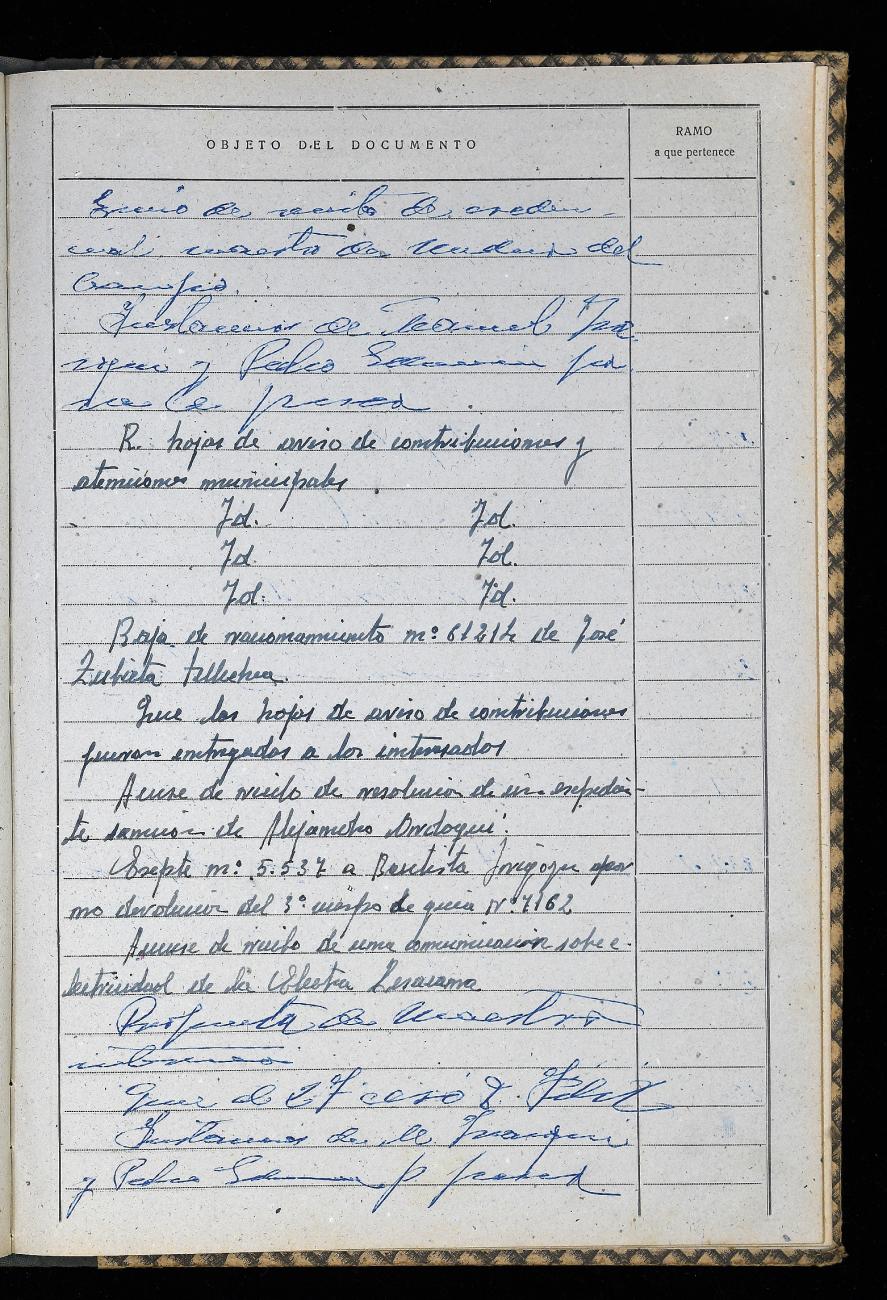 OBJETO DEL DOCUMENTO
RAMO
a que pertenece
Envio de recibo de creden-
cial maestra de del
Campo.
Instancias de Manuel
y Pedro pa
ra la pesca.
R. hojas de aviso de contribuciones y
atenciones municipales
Id. Id.
Id. Id.
Id. Id.
Baja de racionamiento nº 61214 de José
Zubieta Tellechea.
Que las hojas de aviso de contribuciones
fueron entregadas a los interesados
Acuse de recibo de resolución de un expedien-
te sanción de Alejandro Ordoqui.
Expte nº 5.537 a Bautista Irigoyen
mo devolución del 3º cuerpo de guia Nº 7162
Acuse de recibo de una comunicación sobre e-
lectricidad de la Electra Lesacana
Propuesta de Maestra
interina
Que el 27 cesó D. Félix
Instancias de M.
y Pedro p. pesca